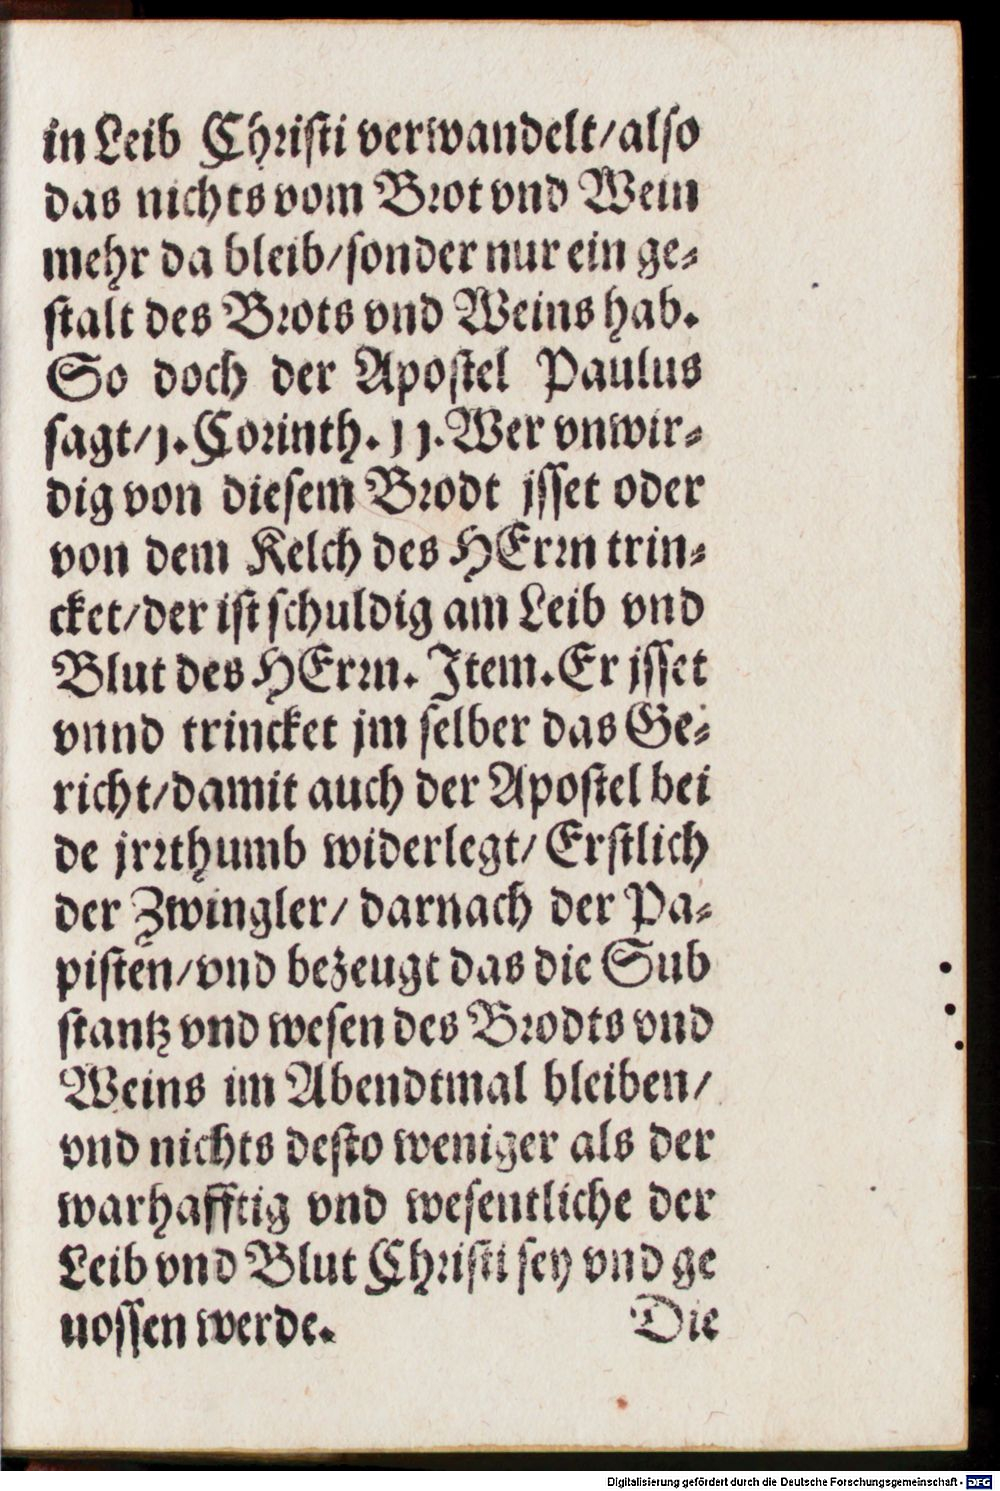 in Leib Christi verwandelt/also
das nichts vom Brot vnd Wein
mehr da bleib/sonder nur ein ge-
stalt des Brots vnd Weins hab.
So doch der Apostel Paulus
sagt/1. Corinth. 11. Wer vnwir-
dig von diesem Brodt jsset oder
von dem Kelch des HErrn trin-
cket/der ist schuldig am Leib vnd
Blut des HErrn. Item. Er jsset
vnnd trincket jm selber das Ge-
richt/damit auch der Apostel bei
de jrrthumb widerlegt/ Erstlich
der Zwingler/ darnach der Pa-
pisten/vnd bezeugt das die Sub
stantz vnd wesen des Brodts vnd
Weins im Abendtmal bleiben/
vnd nichts desto weniger als der
warhafftig vnd wesentliche der
Leib vnd Blut Christi sey vnd ge
nossen werde.
Die
Digitalisierung gefördert durch die Deutsche Forschungsgemeinschaft - DFG